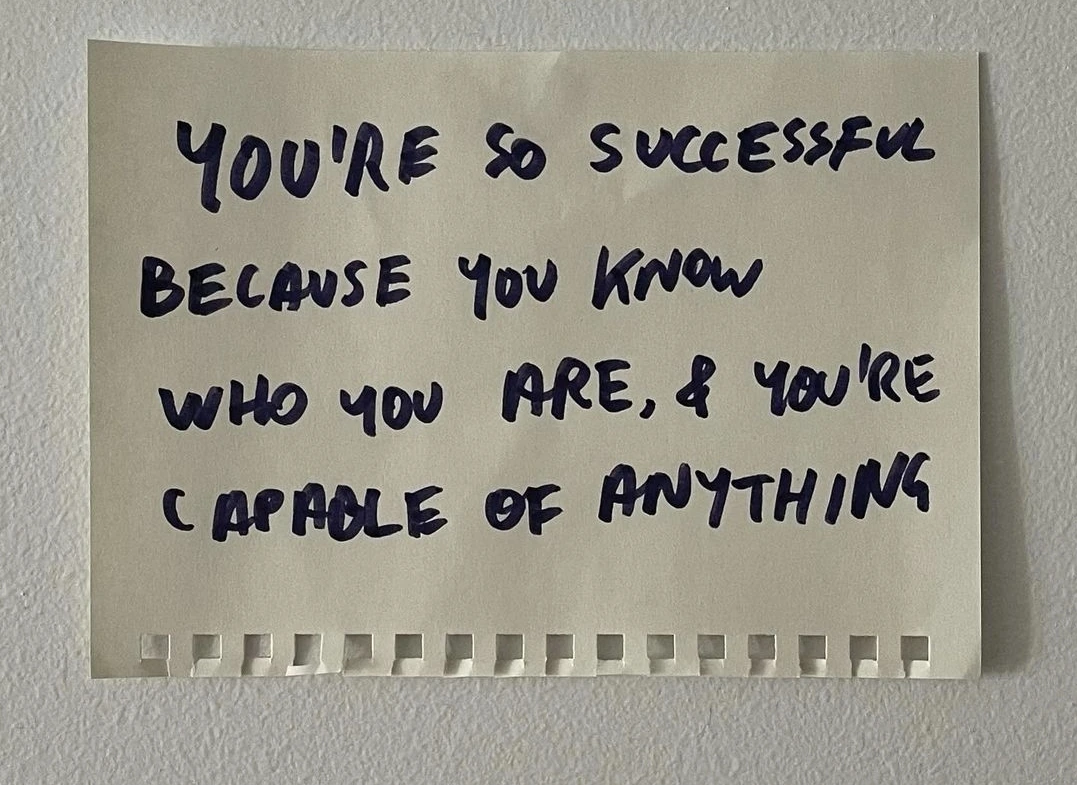 YOU'RE SO SUCCESSFUL
BECAUSE YOU KNOW
WHO YOU ARE, & YOU'RE
CAPABLE OF ANYTHING